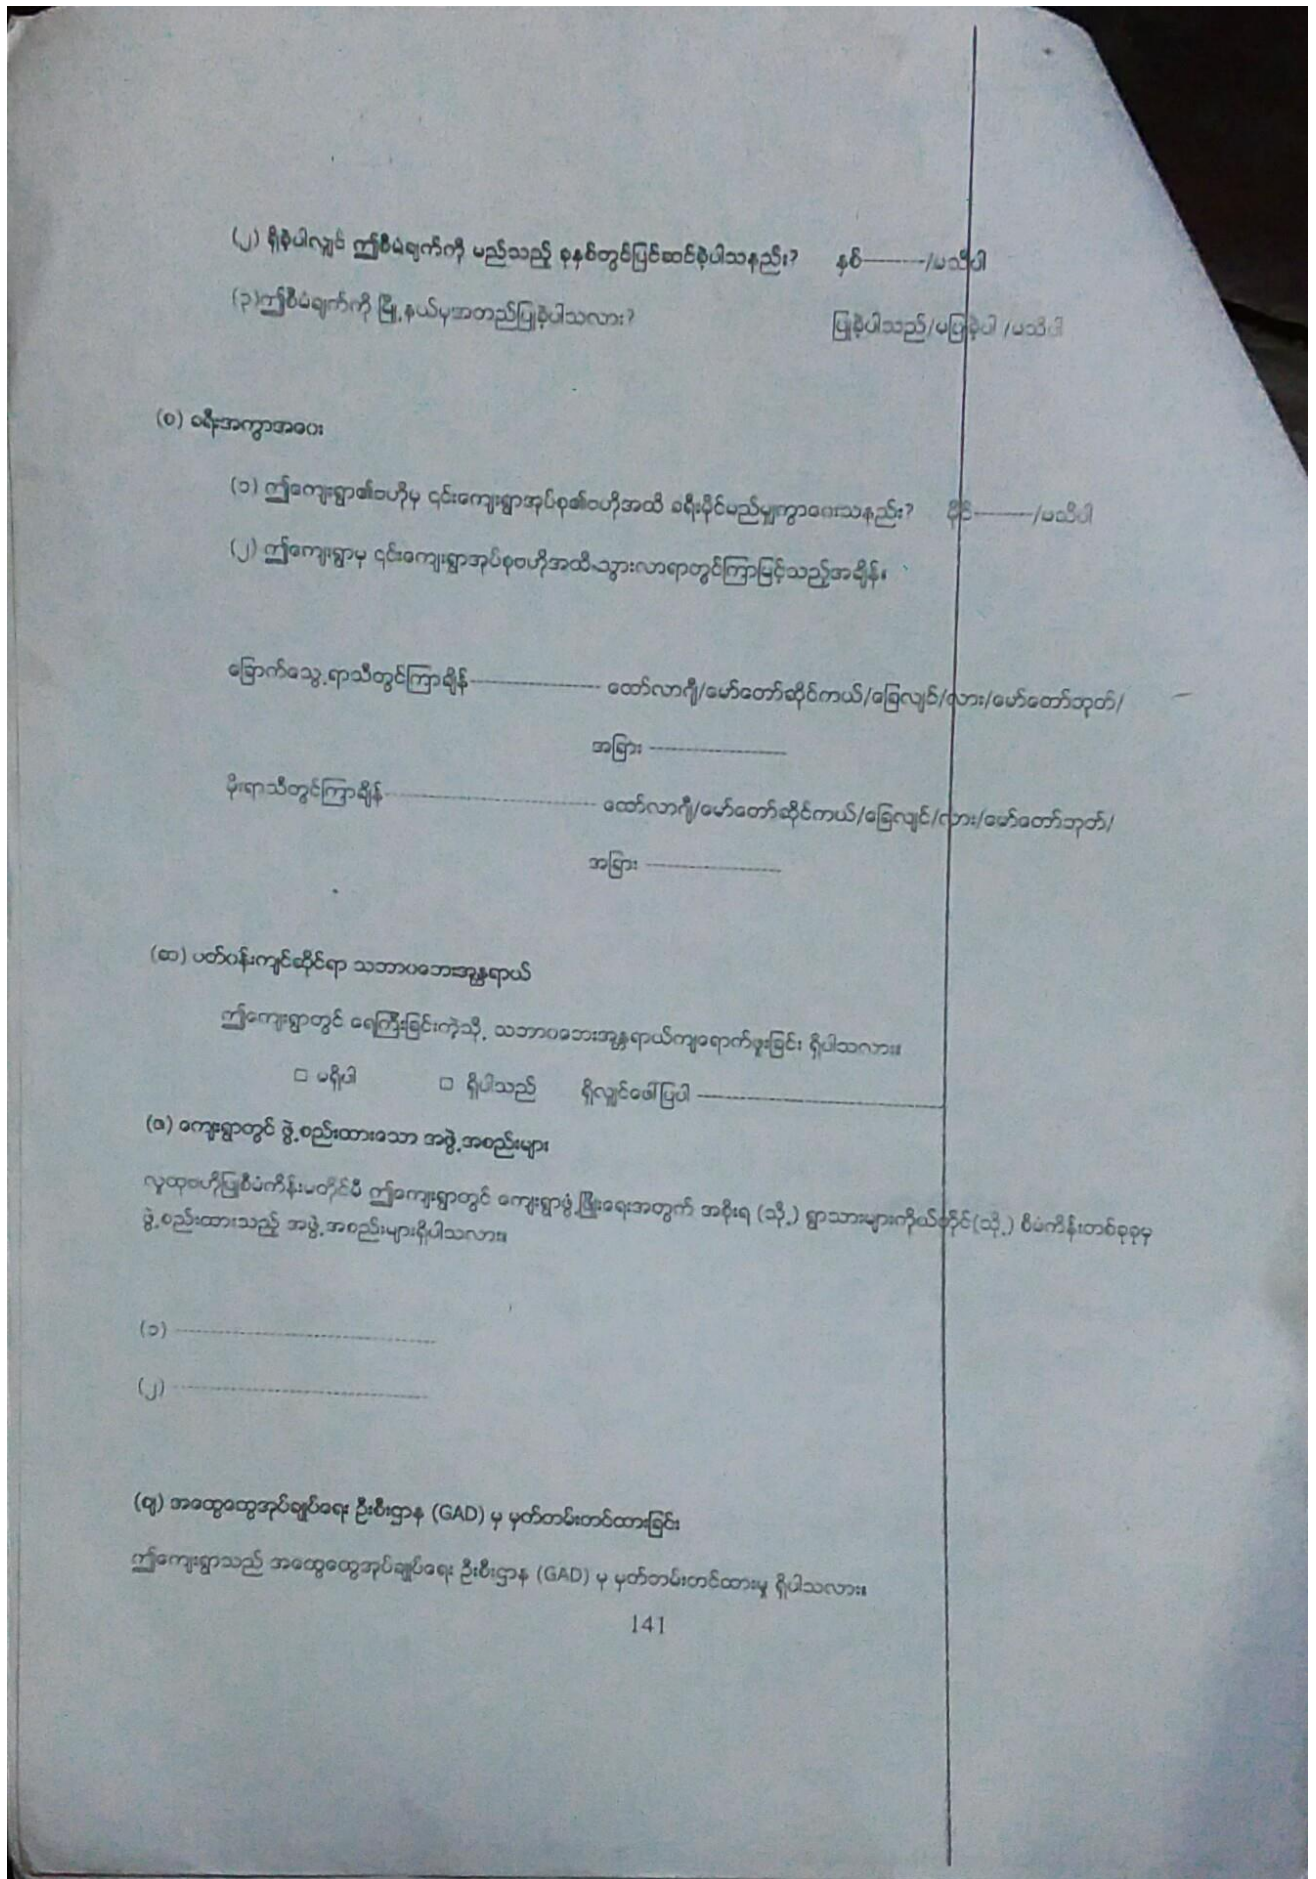 (၂) ရှိခဲ့ပါလျှင် ဤစီမံချက်ကို မည်သည့် ခုနှစ်တွင်ပြင်ဆင်ခဲ့ပါသနည်း? နှစ်---------/မသိပါ
(၃)ဤစီမံချက်ကို မြို့နယ်မှအတည်ပြုခဲ့ပါသလား? ပြုခဲ့ပါသည်/မပြုခဲ့ပါ /မသိပါ
(စ) ခရီးအကွာအဝေး
(၁) ဤကျေးရွာ၏ဗဟိုမှ ၎င်းကျေးရွာအုပ်စု၏ဗဟိုအထိ ခရီးမိုင်မည်မျှကွာဝေးသနည်း? မိုင်---------/မသိပါ
(၂) ဤကျေးရွာမှ ၎င်းကျေးရွာအုပ်စုဗဟိုအထိ သွားလာရာတွင်ကြာမြင့်သည့်အချိန်။
ခြောက်သွေ့ရာသီတွင်ကြာချိန်--------------------- ထော်လာဂျီ/မော်တော်ဆိုင်ကယ်/ခြေလျင်/လား/မော်တော်ဘုတ်/
အခြား ----------------------
မိုးရာသီတွင်ကြာချိန်---------------------------------- ထော်လာဂျီ/မော်တော်ဆိုင်ကယ်/ခြေလျင်/လား/မော်တော်ဘုတ်/
အခြား ----------------------
(ဆ) ပတ်ဝန်းကျင်ဆိုင်ရာ သဘာဝဘေးအန္တရာယ်
ဤကျေးရွာတွင် ရေကြီးခြင်းကဲ့သို့ သဘာဝဘေးအန္တရာယ်ကျရောက်ဖူးခြင်း ရှိပါသလား။
□ မရှိပါ □ ရှိပါသည် ရှိလျှင်ဖေါ်ပြပါ ----------------------------------------
(ဇ) ကျေးရွာတွင် ဖွဲ့စည်းထားသော အဖွဲ့အစည်းများ
လူထုဗဟိုပြုစီမံကိန်းမတိုင်မီ ဤကျေးရွာတွင် ကျေးရွာဖွံ့ဖြိုးရေးအတွက် အစိုးရ (သို့) ရွာသားများကိုယ်တိုင်(သို့) စီမံကိန်းတစ်ခုခုမှ
ဖွဲ့စည်းထားသည့် အဖွဲ့အစည်းများရှိပါသလား။
(၁) ------------------------------------------
(၂) -----------------------------------------
(ဈ) အထွေထွေအုပ်ချုပ်ရေး ဦးစီးဌာန (GAD) မှ မှတ်တမ်းတင်ထားခြင်း
ဤကျေးရွာသည် အထွေထွေအုပ်ချုပ်ရေး ဦးစီးဌာန (GAD) မှ မှတ်တမ်းတင်ထားမှု ရှိပါသလား။
141